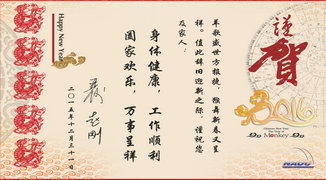 謹
賀
2016
Chinese New Year
The Year of
Monkey
Happy New Year
羊歌盛世方报捷，猴舞新春又呈
祥。值此辞旧迎新之际，谨祝您
及家人：
身体健康，工作顺利
阖家欢乐，万事呈祥
二〇一五年十二月三十一日